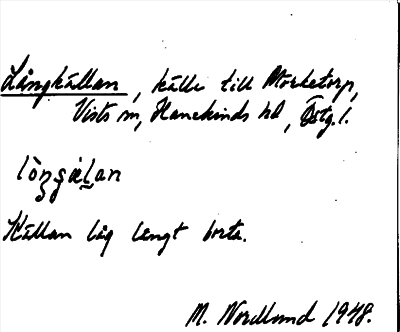 Långkällan, källa till Morketorp,
Vists sn, Hanekinds hd, Östg. l.
Källan låg långt borta.
M. Nordlund 1948.